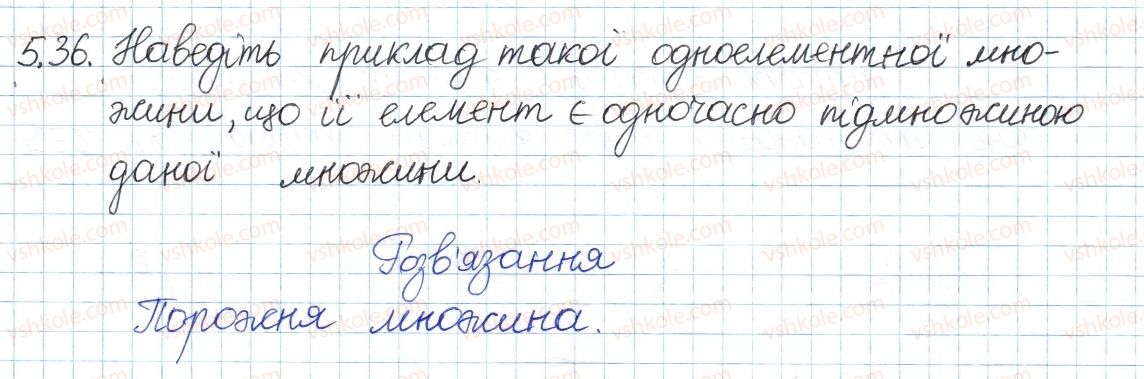 5.36. Наведіть приклад такої одноелементної мно-
жини, що її елемент є одночасно підмножиною
даної множини.
Розв'язання
Порожня множина.